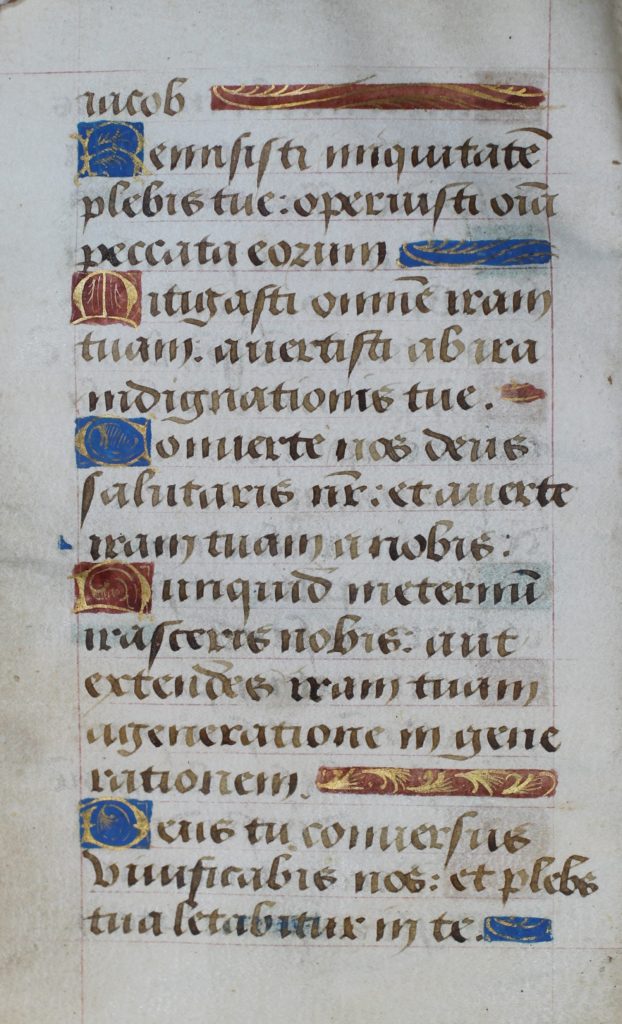 iacob
Remisisti iniquitatē
plebis tue: operuisti oīa
peccata eorum
Mitigasti omnē iram
tuam. auertisti ab ira
indignationis tue.
Conuerte nos deus
salutaris nr̄: et auerte
iram tuam a nobis:
Nunquid ineternū
irasceris nobis: aut
extendes iram tuam
ageneratione in gene
rationem.
Deus tu conuersus
viuificabis nos: et plebs
tua letabitur in te.